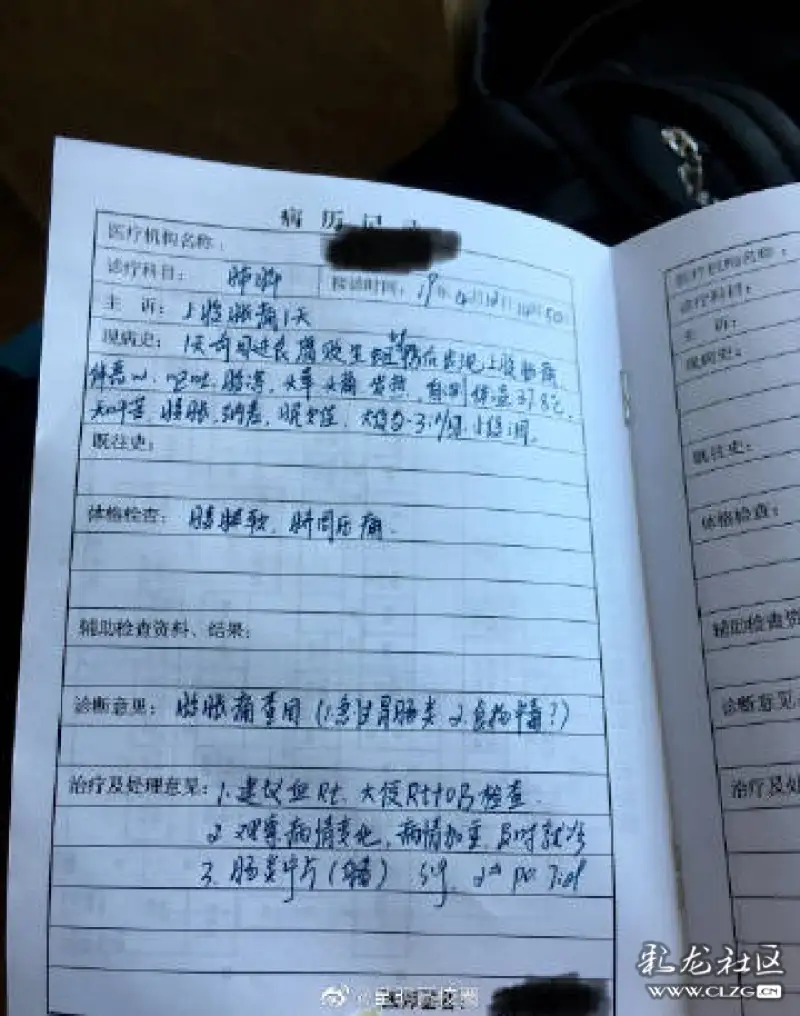 病 历 记 录
医疗机构名称:
诊疗科目: 接诊时间: 19年4月18日14时50
主 诉: 上腹胀痛1天
现病史: 1天前因进食腐败生 后出现上腹胀痛,
伴恶心、呕吐, 头晕 头痛 发热, 自测体温37.8℃,
腹胀, 纳差, 眠欠佳, 大便 2-3次/日, 小便调。
既往史:
体格检查: 腹软, 脐周压痛.
辅助检查资料、结果:
诊断意见: 腹胀痛查因 (1.急性胃肠炎 2.食物中毒?)
治疗及处理意见: 1.建议血Rt、大便Rt+OB检查.
2.观察病情变化, 病情加重, 及时就诊
3.肠炎宁片 sig. po tid
医疗机构名称:
诊疗科目:
主 诉:
现病史:
既往史:
体格检查:
辅助检查资
诊断意见:
治疗及处
彩龙社区
WWW.CLZG.CN